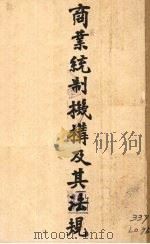 商業統制機構及其法規
337